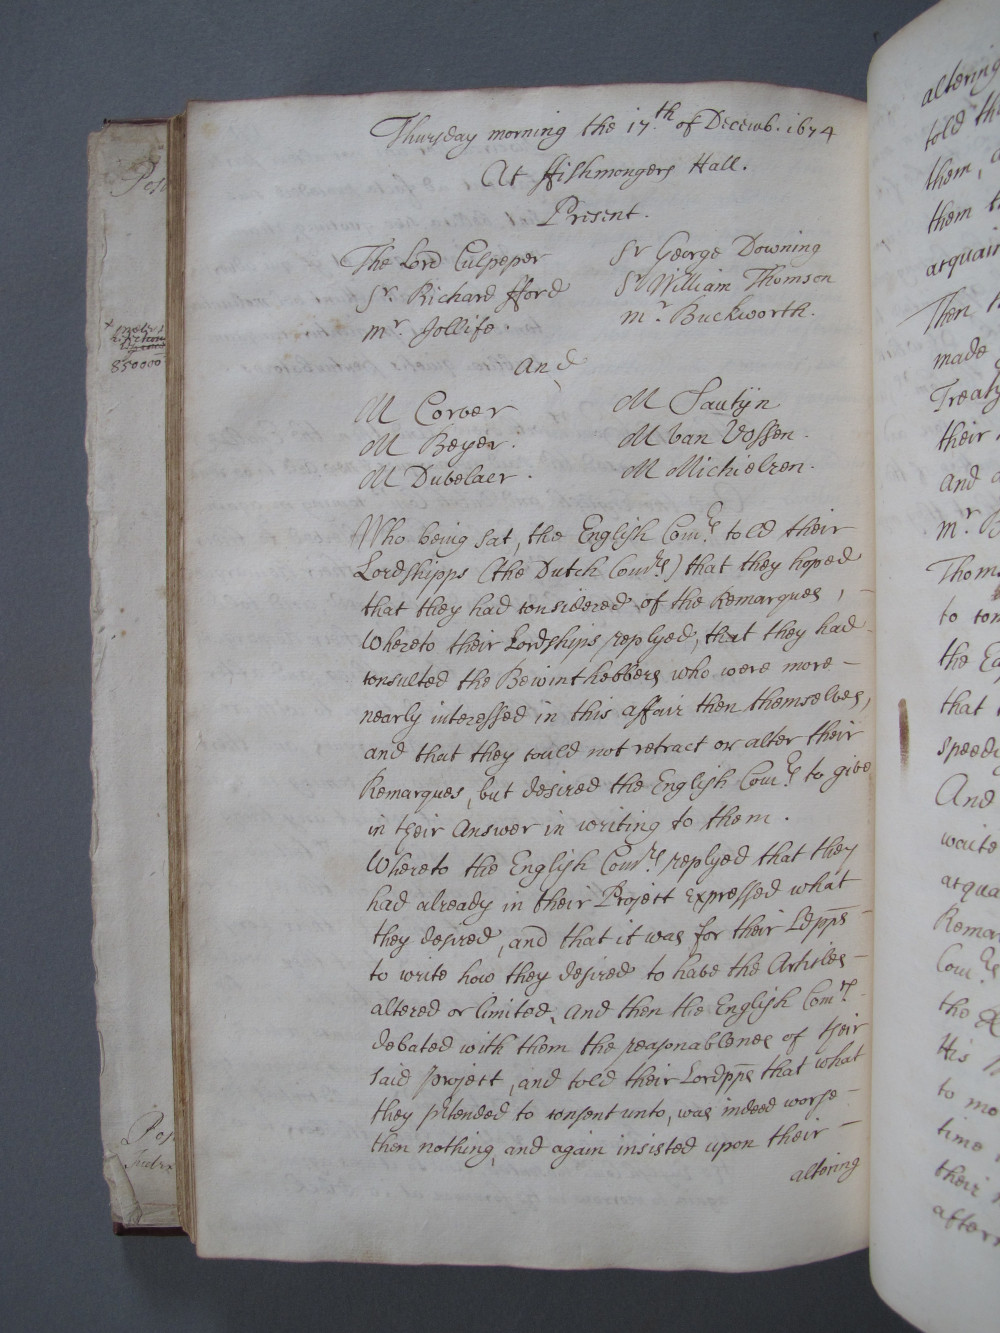 Thursday morning the 17.th of Decemb. 1674
At ffishmongers Hall.
Present.
The Lord Culpeper
Sr George Downing
Sr. Richard fford
Sr William Thomson
mr. Jollife.
mr. Buckworth.
And
M Corver
M Sautÿn
M Beyer.
M Van Vossen.
M Dubelaer.
M Michielzen.
Who being sat, the English Comrs. told their
Lordshipps (the Dutch Comrs.) that they hoped
that they had considered of the Remarques, –
Whereto their Lordships replyed, that they had –
consulted the Bewinthebbers who were more –
nearly interessed in this affair then themselves,
and that they could not retract or alter their
Remarques, but desired the English Comrs. to give
in their Answer in writing to them.
Whereto the English Comrs. replyed that they
had already in their Project Expressed what
they desired, and that it was for their Ldpps –
to write how they desired to have the Articles –
altered or limited, And then the English Comrs. –
debated with them the reasonablenes of their
said project, and told their Lordpps that what
they pretended to consent unto, was indeed worse –
then nothing, and again insisted upon their –
altering
850000
altering
told th
them,
them t
acquain
Then
made
Treaty
their
And
mr.
Thoms
to
the Ea
that
speedi
And
waite
acqua
Remar
Comrs
the
His
to mo
time
their
aftern